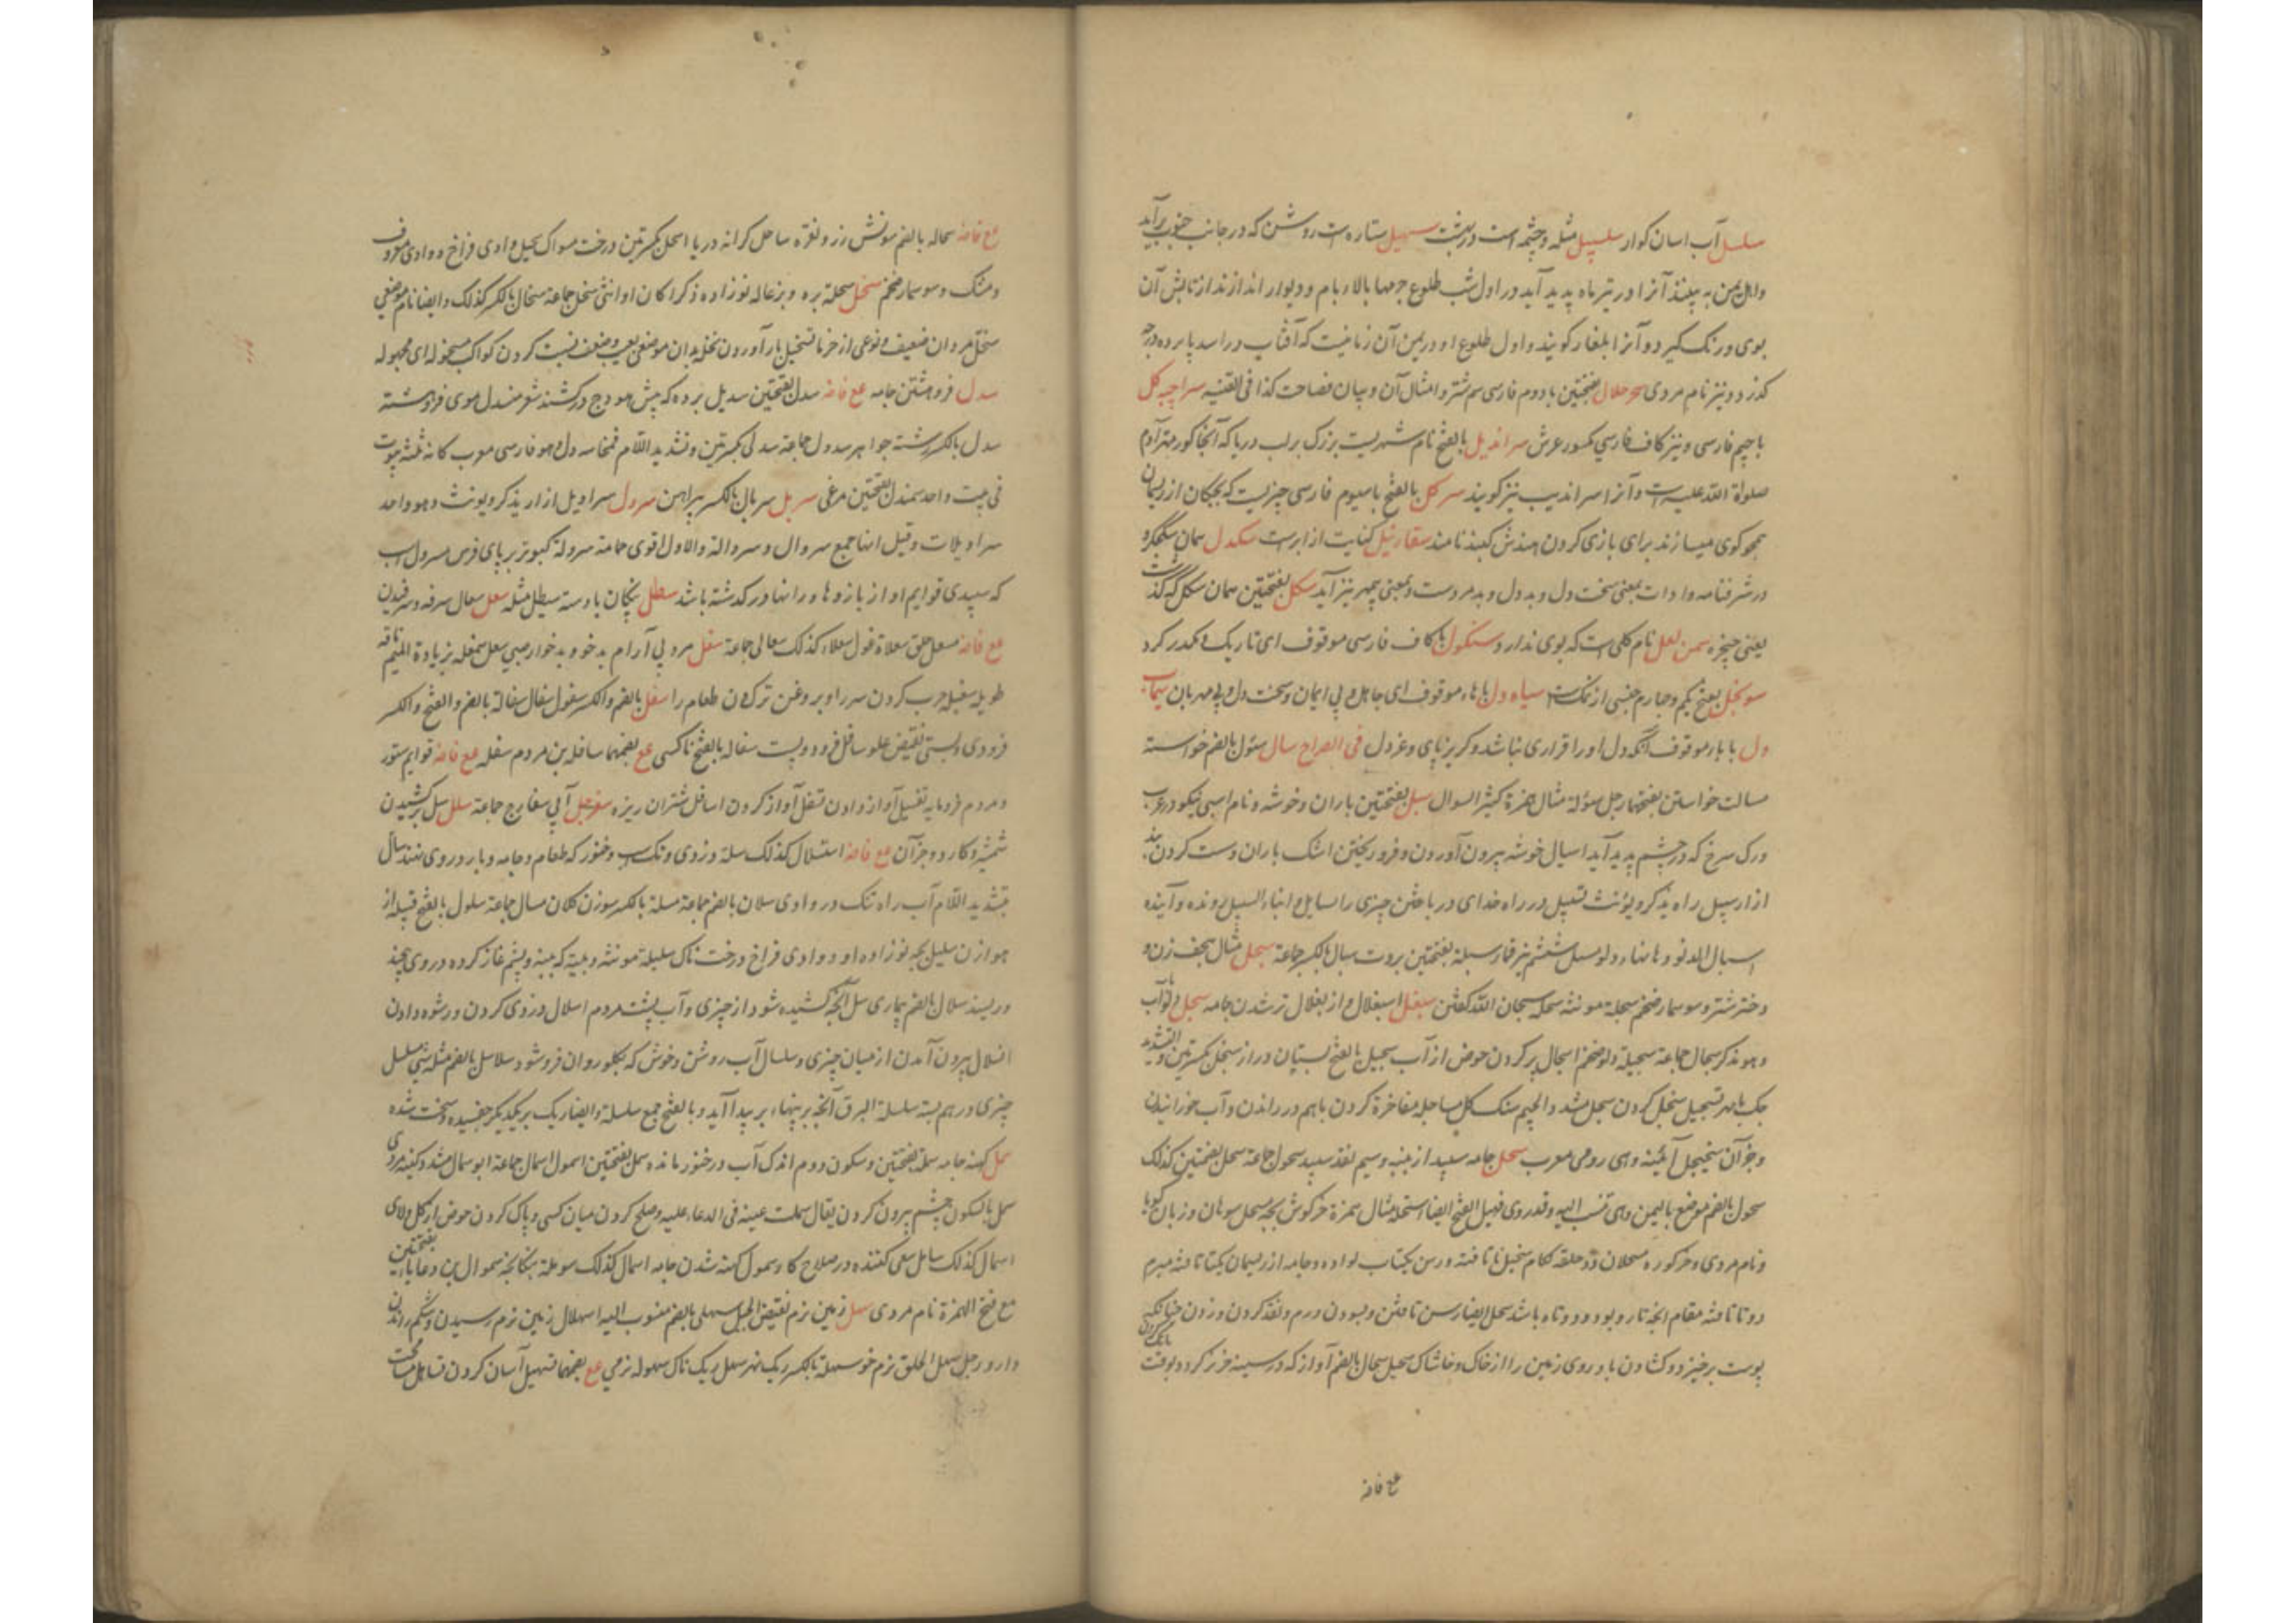 سلسل آب اسان کوار سلسبیل مثله و چشمه است در بهشت سهیل ستاره است روشن که در جانب جنوب برآید
و اهل یمن به بینند آنرا در تیر ماه پدید آید در اول شب طلوع چرمها بالا بام و دیوار اندازند از تابش آن
بوی و رنک کیرد و آنرا بلغار کویند و اول طلوع او در یمن آن زمانیست که آفتاب در اسد پانزده درجه
کذرد و نیز نام مردی سحر حلال بفتحتین با دوم فارسی سم شتر و امثال آن و بیان فصاحت کذا فی القنیه سراچه کل
با جیم فارسی و نیز کاف فارسی مکسور عرش سراندیل بالفتح نام شهریست بزرک بر لب دریا که آنجا کور مهتر آدم
صلواة الله علیه است و آنرا سراندیب نیز کویند سرکل بالفتح با سیوم فارسی چیزیست که بچکان از ریسمان
همچو کوی میسازند برای بازی کردن هندش کیند نامند سقارنیل کنایت از ابر است سکدل
در شرفنامه و ادات بمعنی سخت دل و بد دل و بد مردست و بمعنی بیمهر نیز آید سکل بفتحتین همان سکل که گذشت
یعنی سمن لعل نام کلی است که بوی ندارد سنکول با کاف فارسی موقوف ای تاریک و مکدر کرد
بفتح یکم و چهارم جنسی از نمک است سیاه دل با هاء موقوف ای جاهل و بی ایمان و سخت دل و بی مهربان سیماب
دل با باء موقوف آنکه دل او را قراری نباشد و کریزپای و غردل فی الصراح سال سئول بالضم خواسته
مسالت خواستن بفتحها رجل سؤلة مثال همزة کثیر السوال سبل بفتحتین باران و خوشه و نام اسبی نیکو در عرب
و رک سرخ که در چشم پدید آید اسبال خوشه بیرون آوردن و فرو ریختن اشک باران و ست کردن بند
ازار سبیل راه یذکر و یؤنث تسبیل در راه خدای در باختن چیزی را سابل و ابناء السبیل رونده و آینده
اسبال الدلو و مسبل ششم تیر قمار سبلة بفتحتین بروت سبال بالکسر جماعة سبحل مثال هجف زن و
دختر شتر و سوسمار ضخم سبحلة مونثه سبحله سبحان الله کفتن سبغل اسبغلال و ازبغلال تر شدن جامه سجل دلو آب
و هو مذکر سجال جماعة سجیلة دلو ضخم اسجال پر کردن حوض از آب سجیل بالفتح پستان دراز سجل بکسرتین و التشدید
چک با مهر تسجیل سجل کردن سجل مثد و الجیم سنک کل مساجله مفاخرة کردن باهم در راندن و آب خورانیدن
و جز آن سجنجل آئینه و هی رومی معرب سحل جامه سپید از پنبه و سیم نقد سپید سحول جماعة سحل بضمتین کذلک
سحول بالضم موضع بالیمن و هی تنسب الیه و قد روی فیه الفتح ایضا سحلة مثال همزة خرکوش بچه مسحل سوهان و زبان کویا
و نام مردی و خر کوره مسحلان دو حلقه لکام سحیل تا تافته و رسن یکتاب لوا ده و جامه از ریسمان یکتا تافته مبرم
دو تا تافته مقام آنچه تار و پود دو تاه باشد سحل ایضا رسن تافتن و بسودن درم و نقد کردن و زدن چنانکه
پوست برخیزد و کشادن باد روی زمین را از خاک و خاشاک سحیل سحال بالضم آواز که در سینه خر کردد بوقت بانک کردن
مع فامه
مع فامه سحاله بالضم سونش زر و نقره ساحل کرانه دریا اسحل بکسرتین درخت مسواک سحبل وادی فراخ و وادی معروف
و مشک و سوسمار ضخم سخل سخلة بره و بزغاله نوزاده ذکرا کان او انثی سخل جماعة سخال بالکسر کذلک و ایضا نام موضعی
سخل مردان ضعیف و نوعی از خرما تسخیل بار آوردن نخل بدان موضعی بعیب و ضعف نسبت کردن کواکب مسخولة ای مجهوله
سدل فروهشتن جامه مع فامه سدل بفتحتین سدیل پرده که پیش هودج درکشند شعر منسدل موی فروهشته
سدل بالکسر رشته جواهر سدول جماعة سدلی بکسرتین و تشدید اللام و هو فارسی معرب کانه ثلثه بیوت
فی بیت واحد سمندل بفتحتین مرغی سربل سربال بالکسر پیراهن سرول سراویل ازار یذکر و یونث و هو واحد
سراویلات و قیل انها جمع سروال و سروالة و الاول اقوی حمامة مسرولة کبوتر پر پای فرس مسرول اسب
که سپیدی قوایم او از بازوها و رانها در گذشته باشد سطل پنکان با دسته سیطل مثله سعل سعال سرفه و سرفیدن
مع فامه مسعل حلق سعلاة غول سعلاء کذلک سعالی جماعة سغل مرد بی آرام بدخو و بدخوار صبی سغل سمغلة بزیادة المیم ناقه
طویله سغبله چرب کردن سر را و بروغن تر کردن طعام را سفل بالضم والکسر سفول سفال سفالة بالضم و الفتح و الکسر
فرودی و پستی نقیض علو سافل فرود و پست سفاله بالفتح ناکسی مع بضمها سافلین مردم سفله مع فامه قوایم ستور
و مردم فرومایه تفسیل آواز دادن تسفل آواز کردن اسافل شتران ریزه سفرجل آبی سفارج جماعة سلل سل برکشیدن
شمشیر و کارد و جز آن مع فامه استلال کذلک سلة دزدی و تک اسب و خنور که طعام و جامه و بار در وی نهند سال
بتشدید اللام آب راه تنک در وادی سلان بالضم جماعة مسلة بالکسر سوزن کلان مسال جماعة سلول بالفتح قبیله از
هوازن سلیل بچه نوزاده و وادی فراخ درخت ناک سلیلة مونثه و پنبه و پشم غاز کرده در وی پیچند
و ریسند سلال بالضم بیماری سل آنچه کشیده شود از چیزی و آب پشت مردم اسلال دزدی کردن و رشوه دادن
انسلال بیرون آمدن از میان چیزی و سلسال آب روشن و خوش که بکلو روان فرو شود سلاسل بالضم مثله شئ مسلسل
چیزی درهم بسته سلسلة البرق آنچه بر پهناء ابر پیدا آید و بالفتح جمع سلسلة و ایضا ریک بر یکدیگر چفسیده و سخت شده
سمل کهنه جامه سملة بفتحتین و سکون دوم اندک آب در خنور مانده سمل بفتحتین سمول اسمال جماعة ابو سمال مشد و کنیه مردی
سمل بالسکون چشم بیرون کردن یقال سملت عینه فی الدعاء علیه و صلح کردن میان کسی و پاک کردن حوض از کل و لای
اسمال کذلک سامل سعی کننده در صلاح کار سمول کهنه شدن جامه اسمال کذلک سوملة پنکانچه سموال بن عادیا بفتحتین
مع فتح الهمزة نام مردی سهل زمین نرم نقیض الجبل سهلی بالضم منسوب الیه اسهال زمین نرم رسیدن و شکم راندن
دارو رجل سهل الخلق نرم خو سهلة بالکسر ریک نهر سهل ریک ناک سهولة نرمی مع بضمها تسهیل آسان کردن تساهل مسامحت